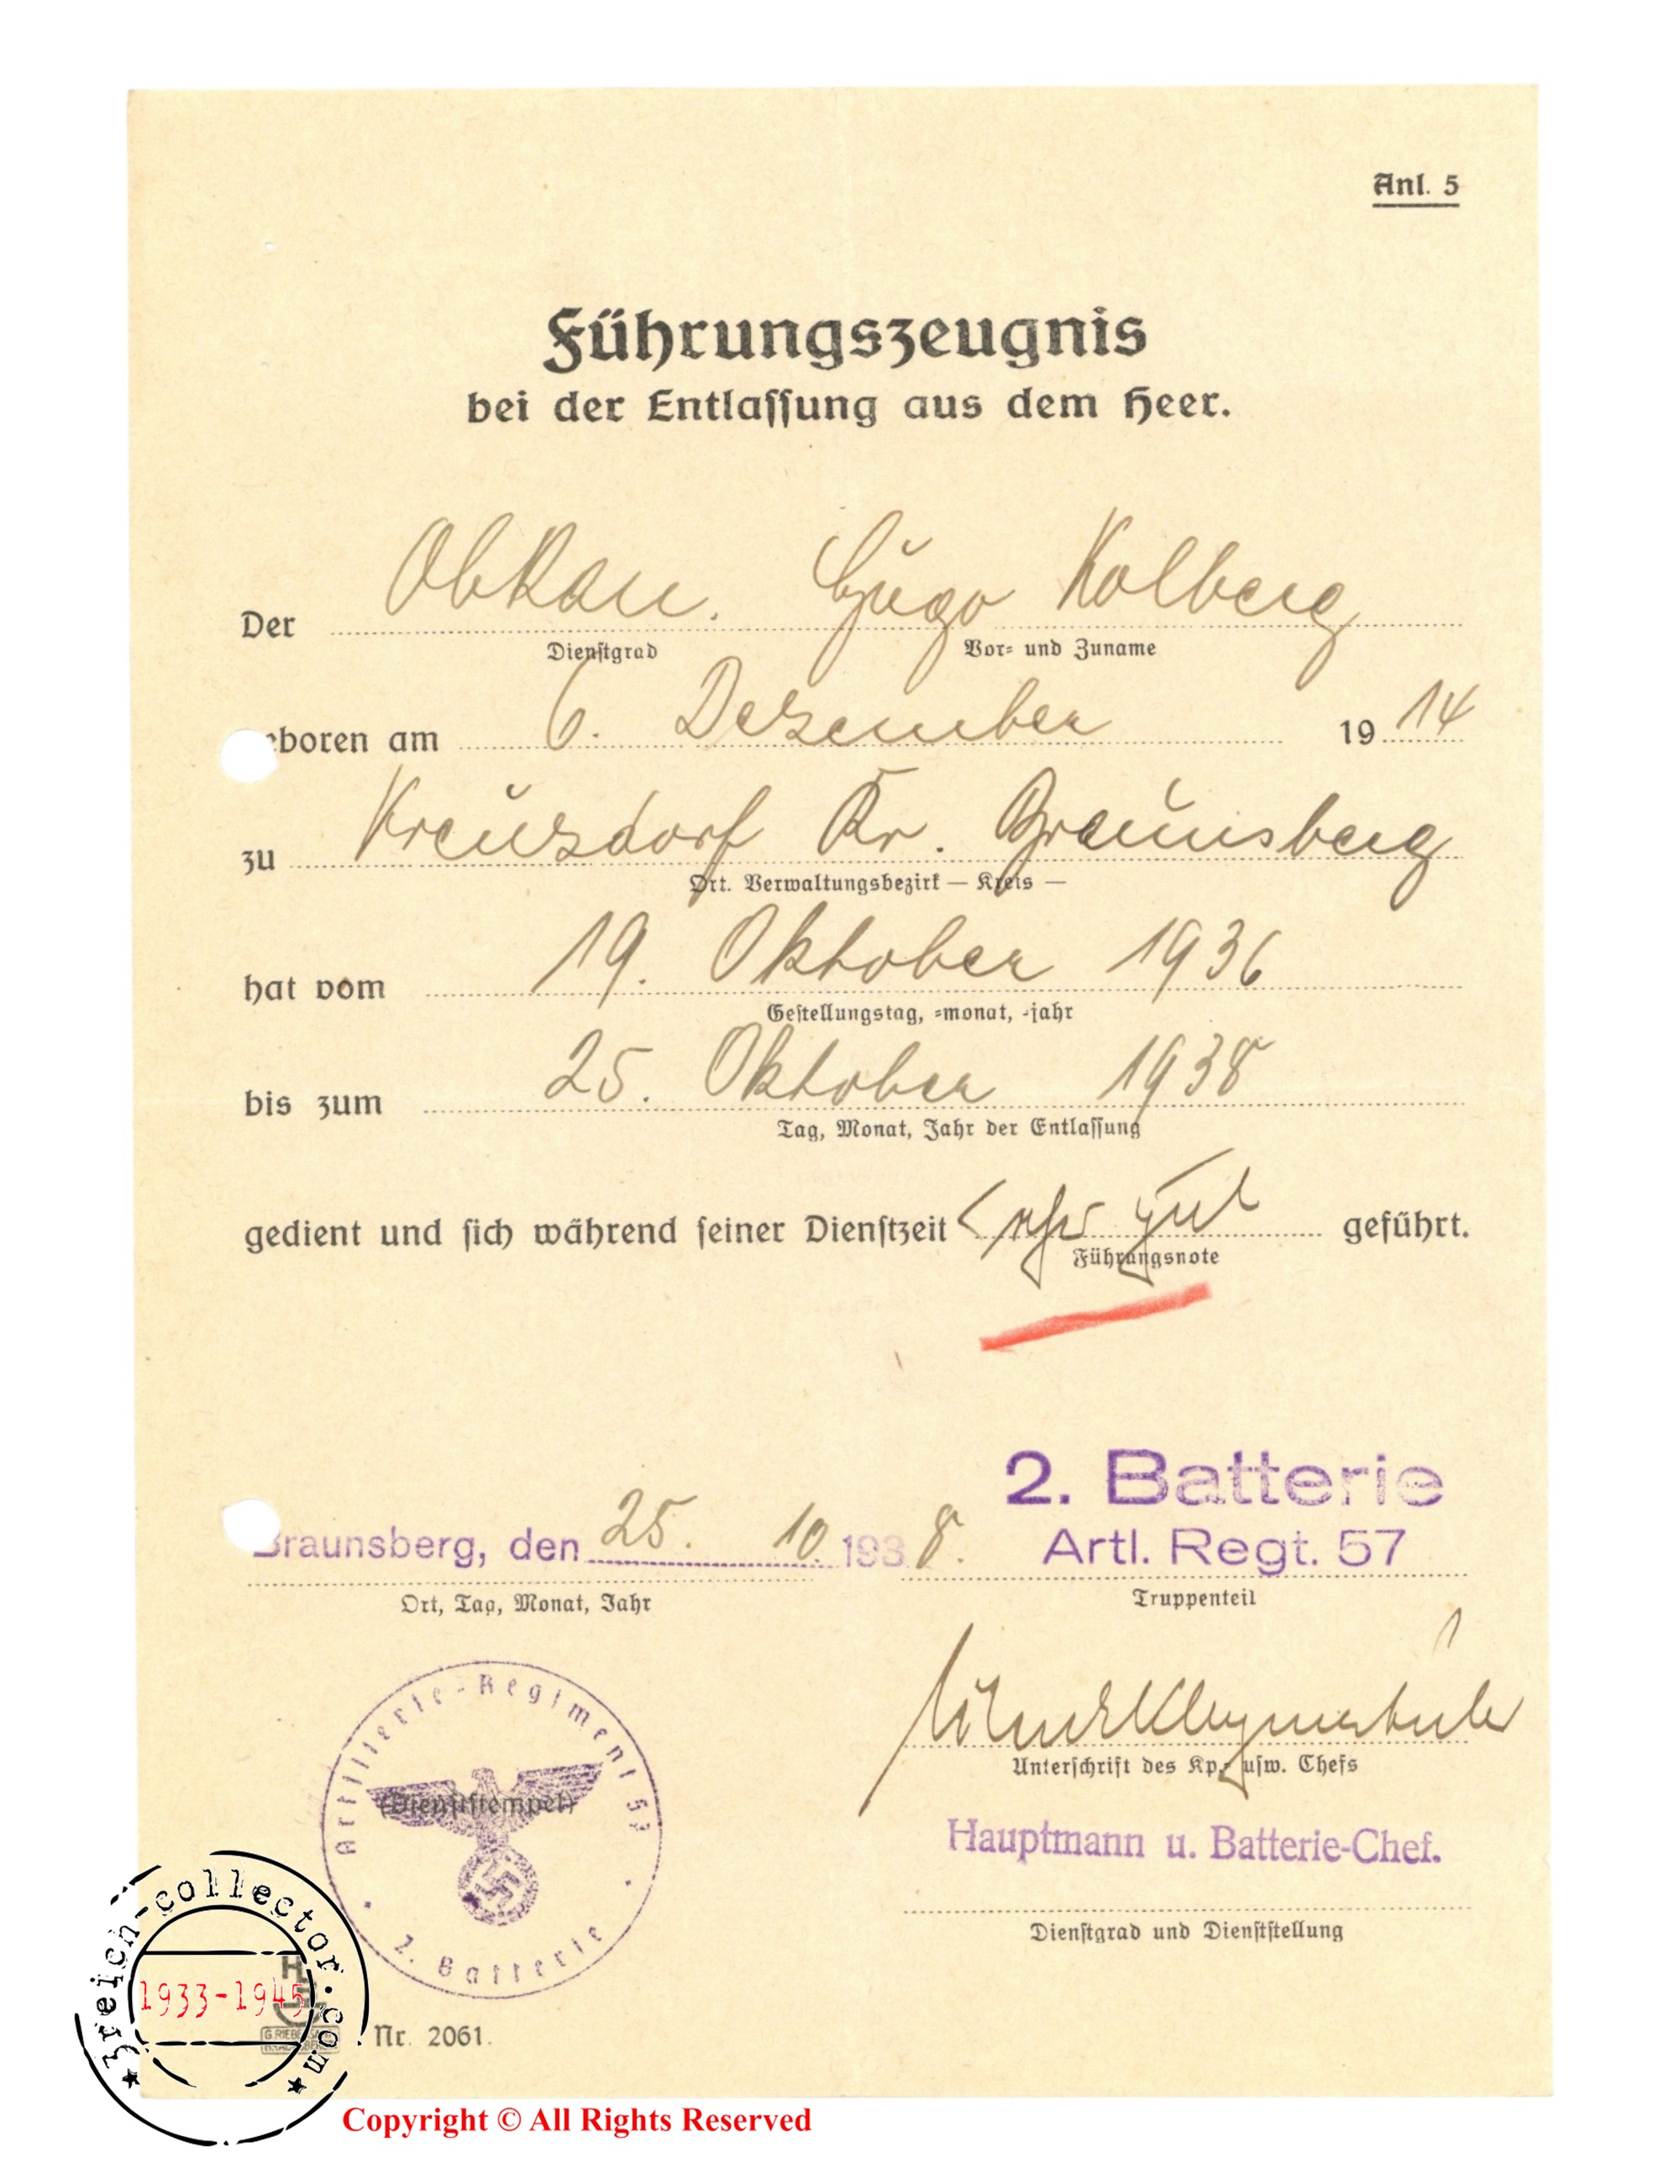 Anl. 5
Führungszeugnis
bei der Entlaſſung aus dem Heer.
Der Obkan. Hugo Kolberg
Dienſtgrad Vor- und Zuname
eboren am 6. Dezember 1914
zu Kreuzdorf Kr. Braunsberg
Ort. Verwaltungsbezirk — Kreis —
hat vom 19. Oktober 1936
Geſtellungstag, -monat, -jahr
bis zum 25. Oktober 1938
Tag, Monat, Jahr der Entlaſſung
gedient und ſich während ſeiner Dienſtzeit ſehr gut geführt.
Führungsnote
2. Batterie
Braunsberg, den 25. 10. 1938. Artl. Regt. 57
Ort, Tag, Monat, Jahr Truppenteil
Unterſchrift des Kp.- uſw. Chefs
Hauptmann u. Batterie-Chef.
Dienſtgrad und Dienſtſtellung
Artillerie-Regiment 57
(Dienſtſtempel)
2. Batterie
3reich-collector.com
1933-1945
Nr. 2061.
Copyright © All Rights Reserved